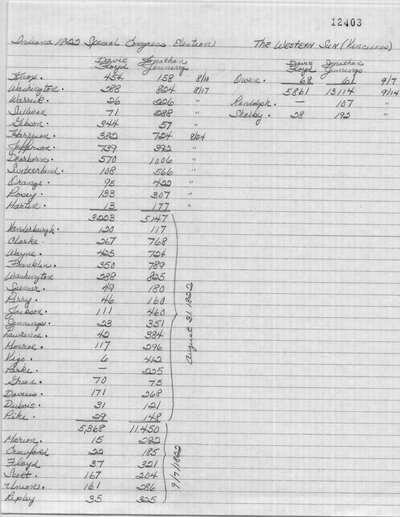 12403
Indiana 1822 Special Congress Election)
The Western Sun (Vincennes)
Davis Floyd Jonathan Jennings
Knox. 454 158 8/10
Washington. 288 824 8/17
Warrick. 26 226 "
Sullivan 71 288 "
Gibson. 344 57 "
Harrison. 382 724 8/24
Jefferson. 739 392 "
Dearborn. 570 1006 "
Switzerland. 108 566 "
Orange. 95 422 "
Posey. 133 307 "
Martin. 13 177 "
3223 5147
Vanderburgh. 120 117
Clarke. 267 768
Wayne. 425 724
Franklin. 350 789
Washington 288 825
Spencer. 49 180
Perry. 46 160
Jackson. 111 460
Jennings. 23 351
Lawrence. 42 384
Monroe. 117 296
Vigo. 6 412
Parke. — 225
Green. 70 75
Daviess 171 268
Dubois. 31 121
Pike. 29 148
August 31 1822
5,368 11,450
Marion. 15 282
Crawford 22 185
Floyd 37 321
Scott. 167 204
Union. 161 286
Ripley 35 325
9/7/1822
Davis Floyd Jonathan Jennings
Owen. 68 61 9/7
5861 13114 9/14
Randolph. — 107 "
Shelby. 28 192 "